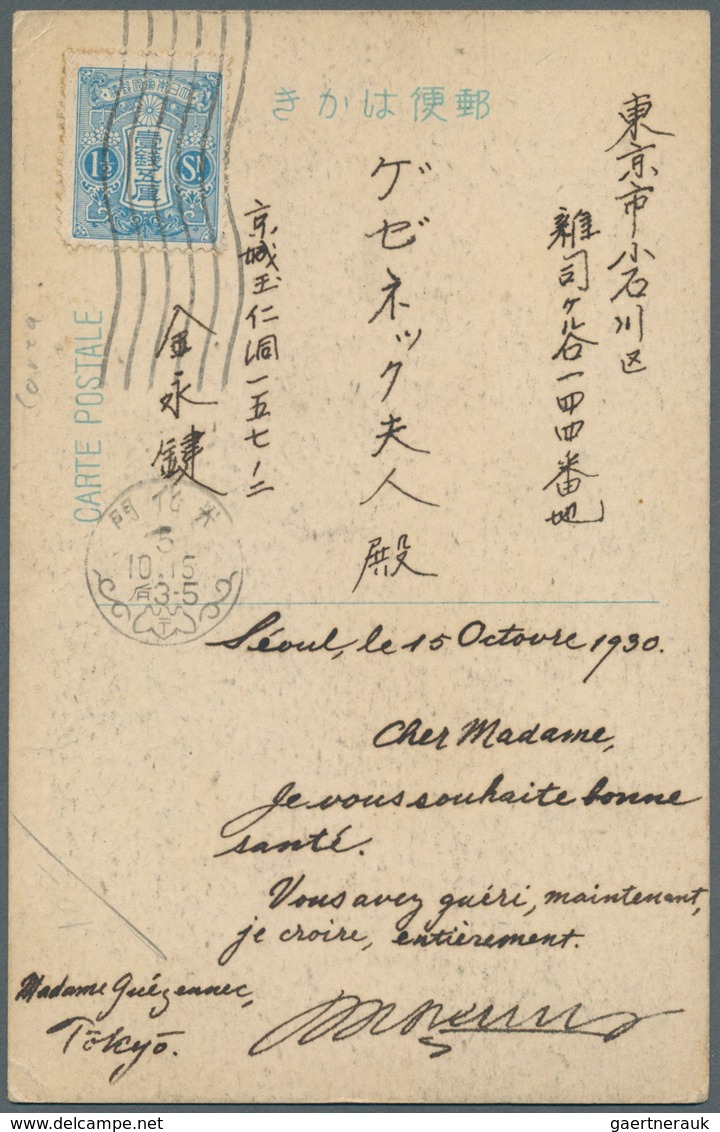 郵便はかき
東京市小石川区
雑司ケ谷一四四番地
ゲゼネック夫人殿
京城玉仁洞一五七ノ二
金永鍵
1½
Sⁿ.
壹錢五厘
CARTE POSTALE
Corea
光化門
5
10.15
后3-5
Séoul, le 15 Octovre 1930.
Cher Madame,
Je vous souhaite bonne
santé.
Vous avez guéri, maintenant,
je croire, entièrement.
Madame Guézennec,
Tōkyō.
gaertnerauk